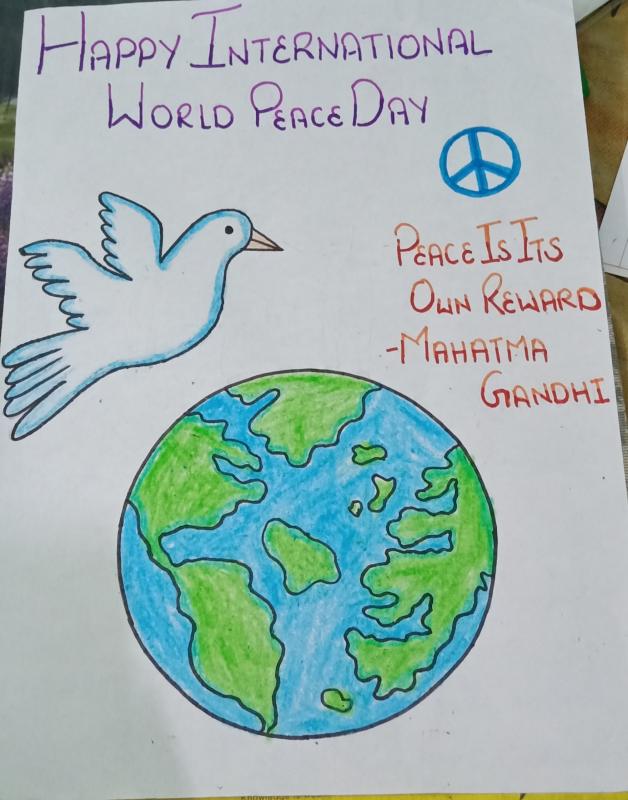 HAPPY INTERNATIONAL
WORLD PEACE DAY
PEACE IS ITS
OWN REWARD
-MAHATMA
GANDHI